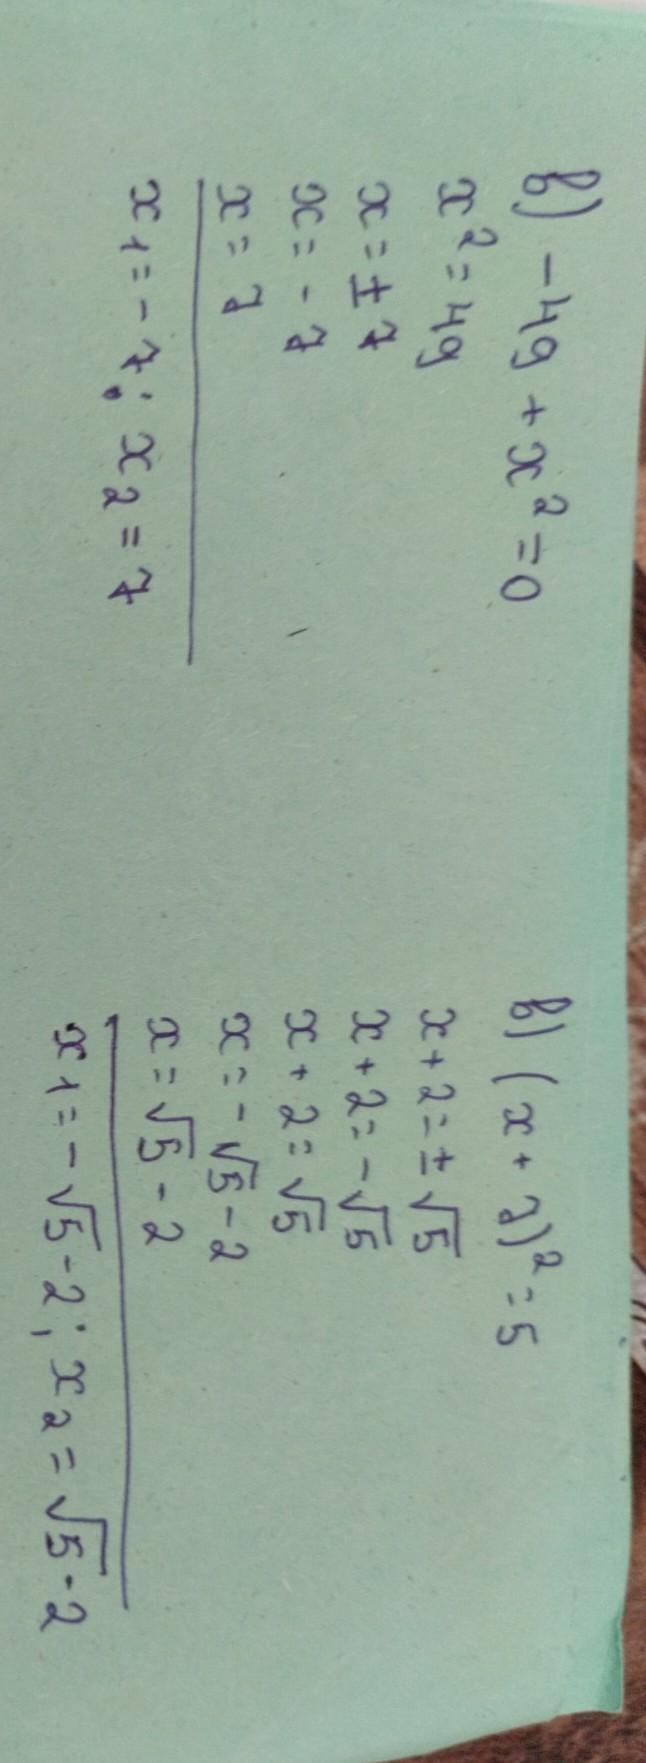 в) -49 + x² = 0
x² = 49
x = ± 7
x = - 7
x = 7
x1 = - 7; x2 = 7
в) (x + 2)² = 5
x + 2 = ± √5
x + 2 = - √5
x + 2 = √5
x = - √5 - 2
x = √5 - 2
x1 = - √5 - 2; x2 = √5 - 2